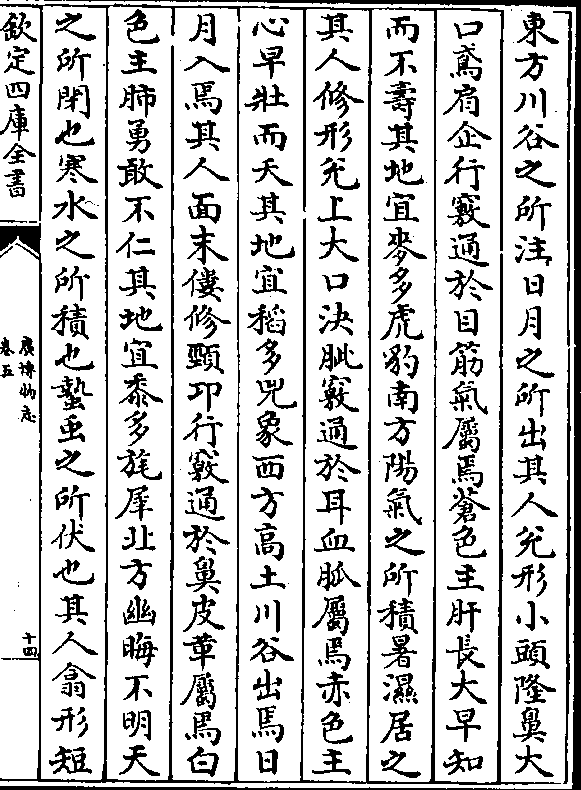 東方川谷之所注日月之所出其人兊形小頭隆鼻大
口鳶肩企行竅通於目筋氣屬焉蒼色主肝長大早知
而不壽其地宜麥多虎豹南方陽氣之所積暑濕居之
其人修形兊上大口決眦竅通於耳血脈屬焉赤色主
心早壯而夭其地宜稻多兕象西方高土川谷出焉日
月入焉其人面末僂修頸卬行竅通於鼻皮革屬焉白
色主肺勇敢不仁其地宜黍多旄犀北方幽晦不明天
之所閉也寒水之所積也蟄虫之所伏也其人翕形短
欽定四庫全書
廣博物志
卷五
十四